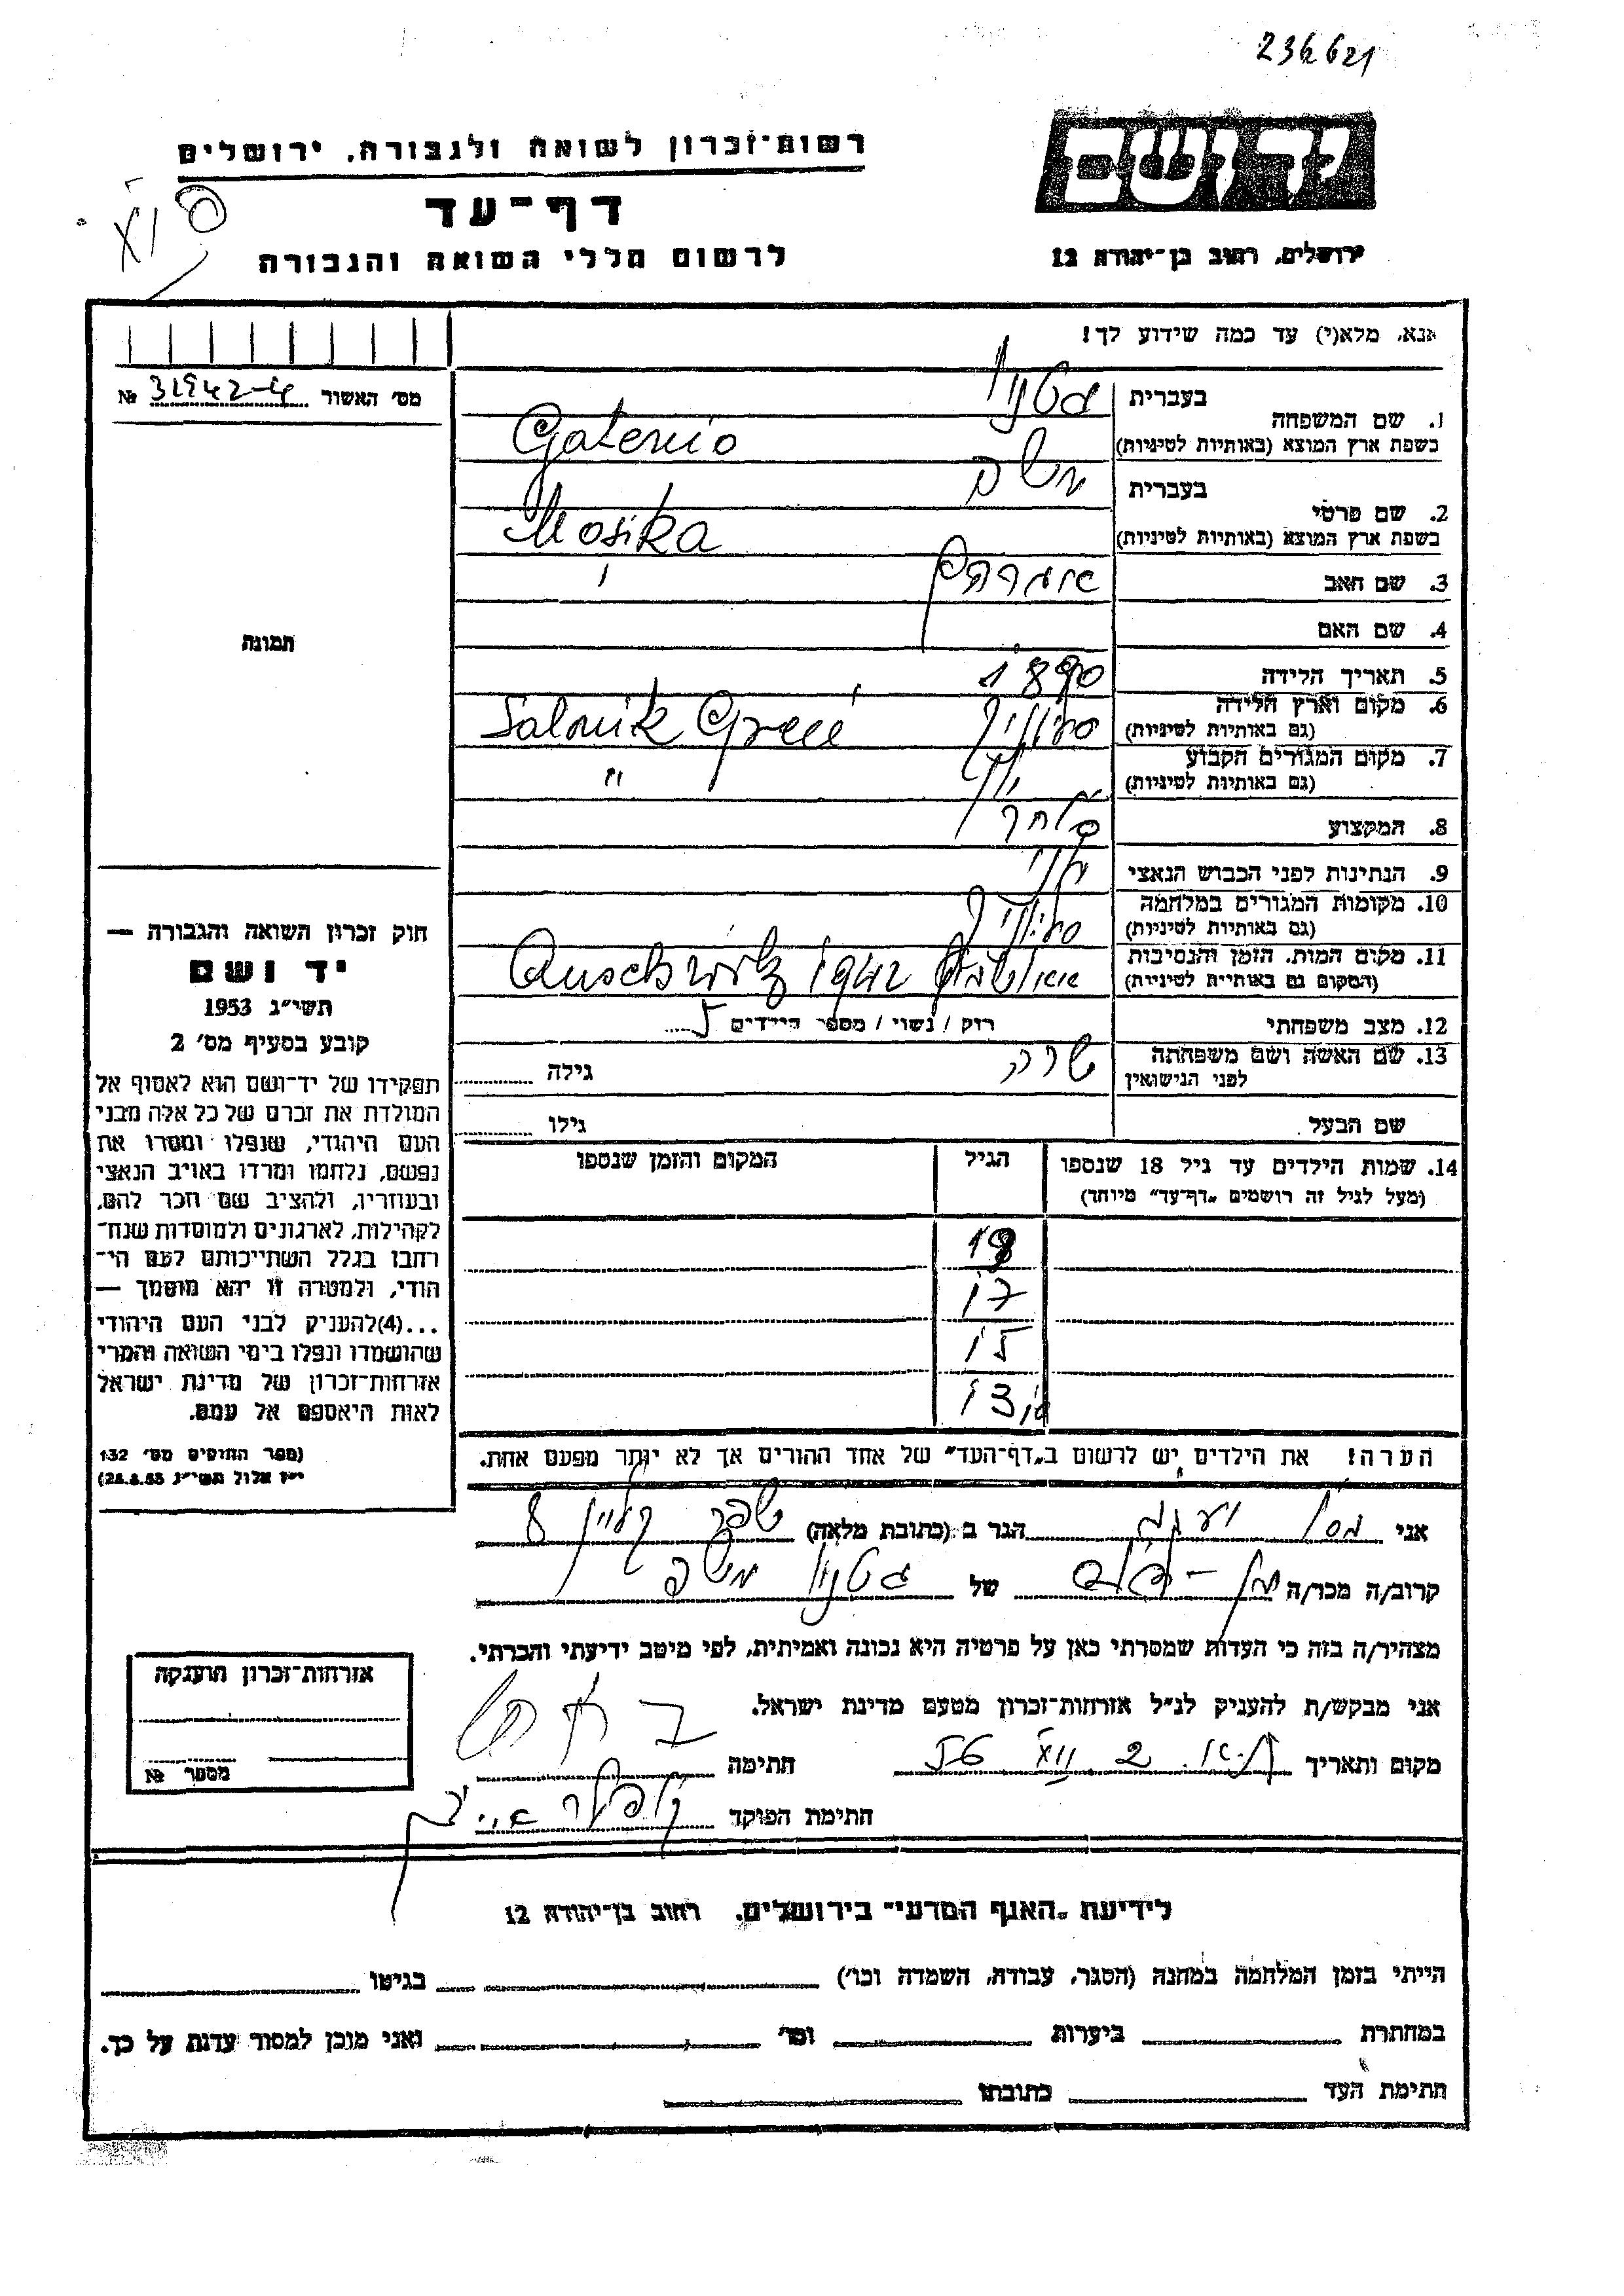 236621
יד ושם
רשות־זכרון לשואה ולגבורה, ירושלים
דף־עד
לרשום חללי השואה והגבורה
ירושלים, רחוב בן־יהודה 12
אנא, מלא(י) עד כמה שידוע לך!
מס׳ האשור 31942-4 №
1. שם המשפחה
בעברית גטניו
בשפת ארץ המוצא (באותיות לטיניות) Gatenio
2. שם פרטי
בעברית משה
בשפת ארץ המוצא (באותיות לטיניות) Mosika
3. שם האב אברהם
4. שם האם
5. תאריך הלידה 1890
6. מקום וארץ הלידה סלוניקי Salonik Grecé
(גם באותיות לטיניות)
7. מקום המגורים הקבוע "
(גם באותיות לטיניות)
8. המקצוע סוחר
9. הנתינות לפני הכבוש הנאצי יוני
10. מקומות המגורים במלחמה סלוניקי
(גם באותיות לטיניות)
11. מקום המות, הזמן והנסיבות 1942 Auschwitz
(המקום גם באותיות לטיניות)
12. מצב משפחתי רוק / נשוי / מספר הילדים 5
13. שם האשה ושם משפחתה שרה גילה
לפני הנישואין
שם הבעל גילו
14. שמות הילדים עד גיל 18 שנספו הגיל המקום והזמן שנספו
(מעל לגיל זה רושמים „דף־עד" מיוחד)
18
17
15
13
הערה! את הילדים יש לרשום ב„דף־העד" של אחד ההורים אך לא יותר מפעם אחת.
תמונה
חוק זכרון השואה והגבורה —
יד ושם
תשי״ג 1953
קובע בסעיף מס׳ 2
תפקידו של יד־ושם הוא לאסוף אל
המולדת את זכרם של כל אלה מבני
העם היהודי, שנפלו ומסרו את
נפשם, נלחמו ומרדו באויב הנאצי
ובעוזריו, ולהציב שם וזכר להם,
לקהילות, לארגונים ולמוסדות שנח־
רבו בגלל השתייכותם לעם הי־
הודי, ולמטרה זו יהא מוסמך —
...(4)להעניק לבני העם היהודי
שהושמדו ונפלו בימי השואה והמרי
אזרחות־זכרון של מדינת ישראל
לאות היאספם אל עמם.
(ספר החוקים מס׳ 132
י״ז אלול תשי״ג 28.8.53)
אני יעקב הגר ב (כתובת מלאה) 8
קרוב/ה מכר/ה של גטניו משה
מצהיר/ה בזה כי העדות שמסרתי כאן על פרטיה היא נכונה ואמיתית, לפי מיטב ידיעתי והכרתי.
אני מבקש/ת להעניק לנ״ל אזרחות־זכרון מטעם מדינת ישראל.
מקום ותאריך 2 VII 56 חתימה
חתימת הפוקד
אזרחות־זכרון הוענקה
מספר №
לידיעת „האגף המדעי" בירושלים, רחוב בן־יהודה 12
הייתי בזמן המלחמה במחנה (הסגר, עבודה, השמדה וכו׳) בגיטו
במחתרת ביערות וכו׳ ואני מוכן למסור עדות על כך.
חתימת העד כתובתו